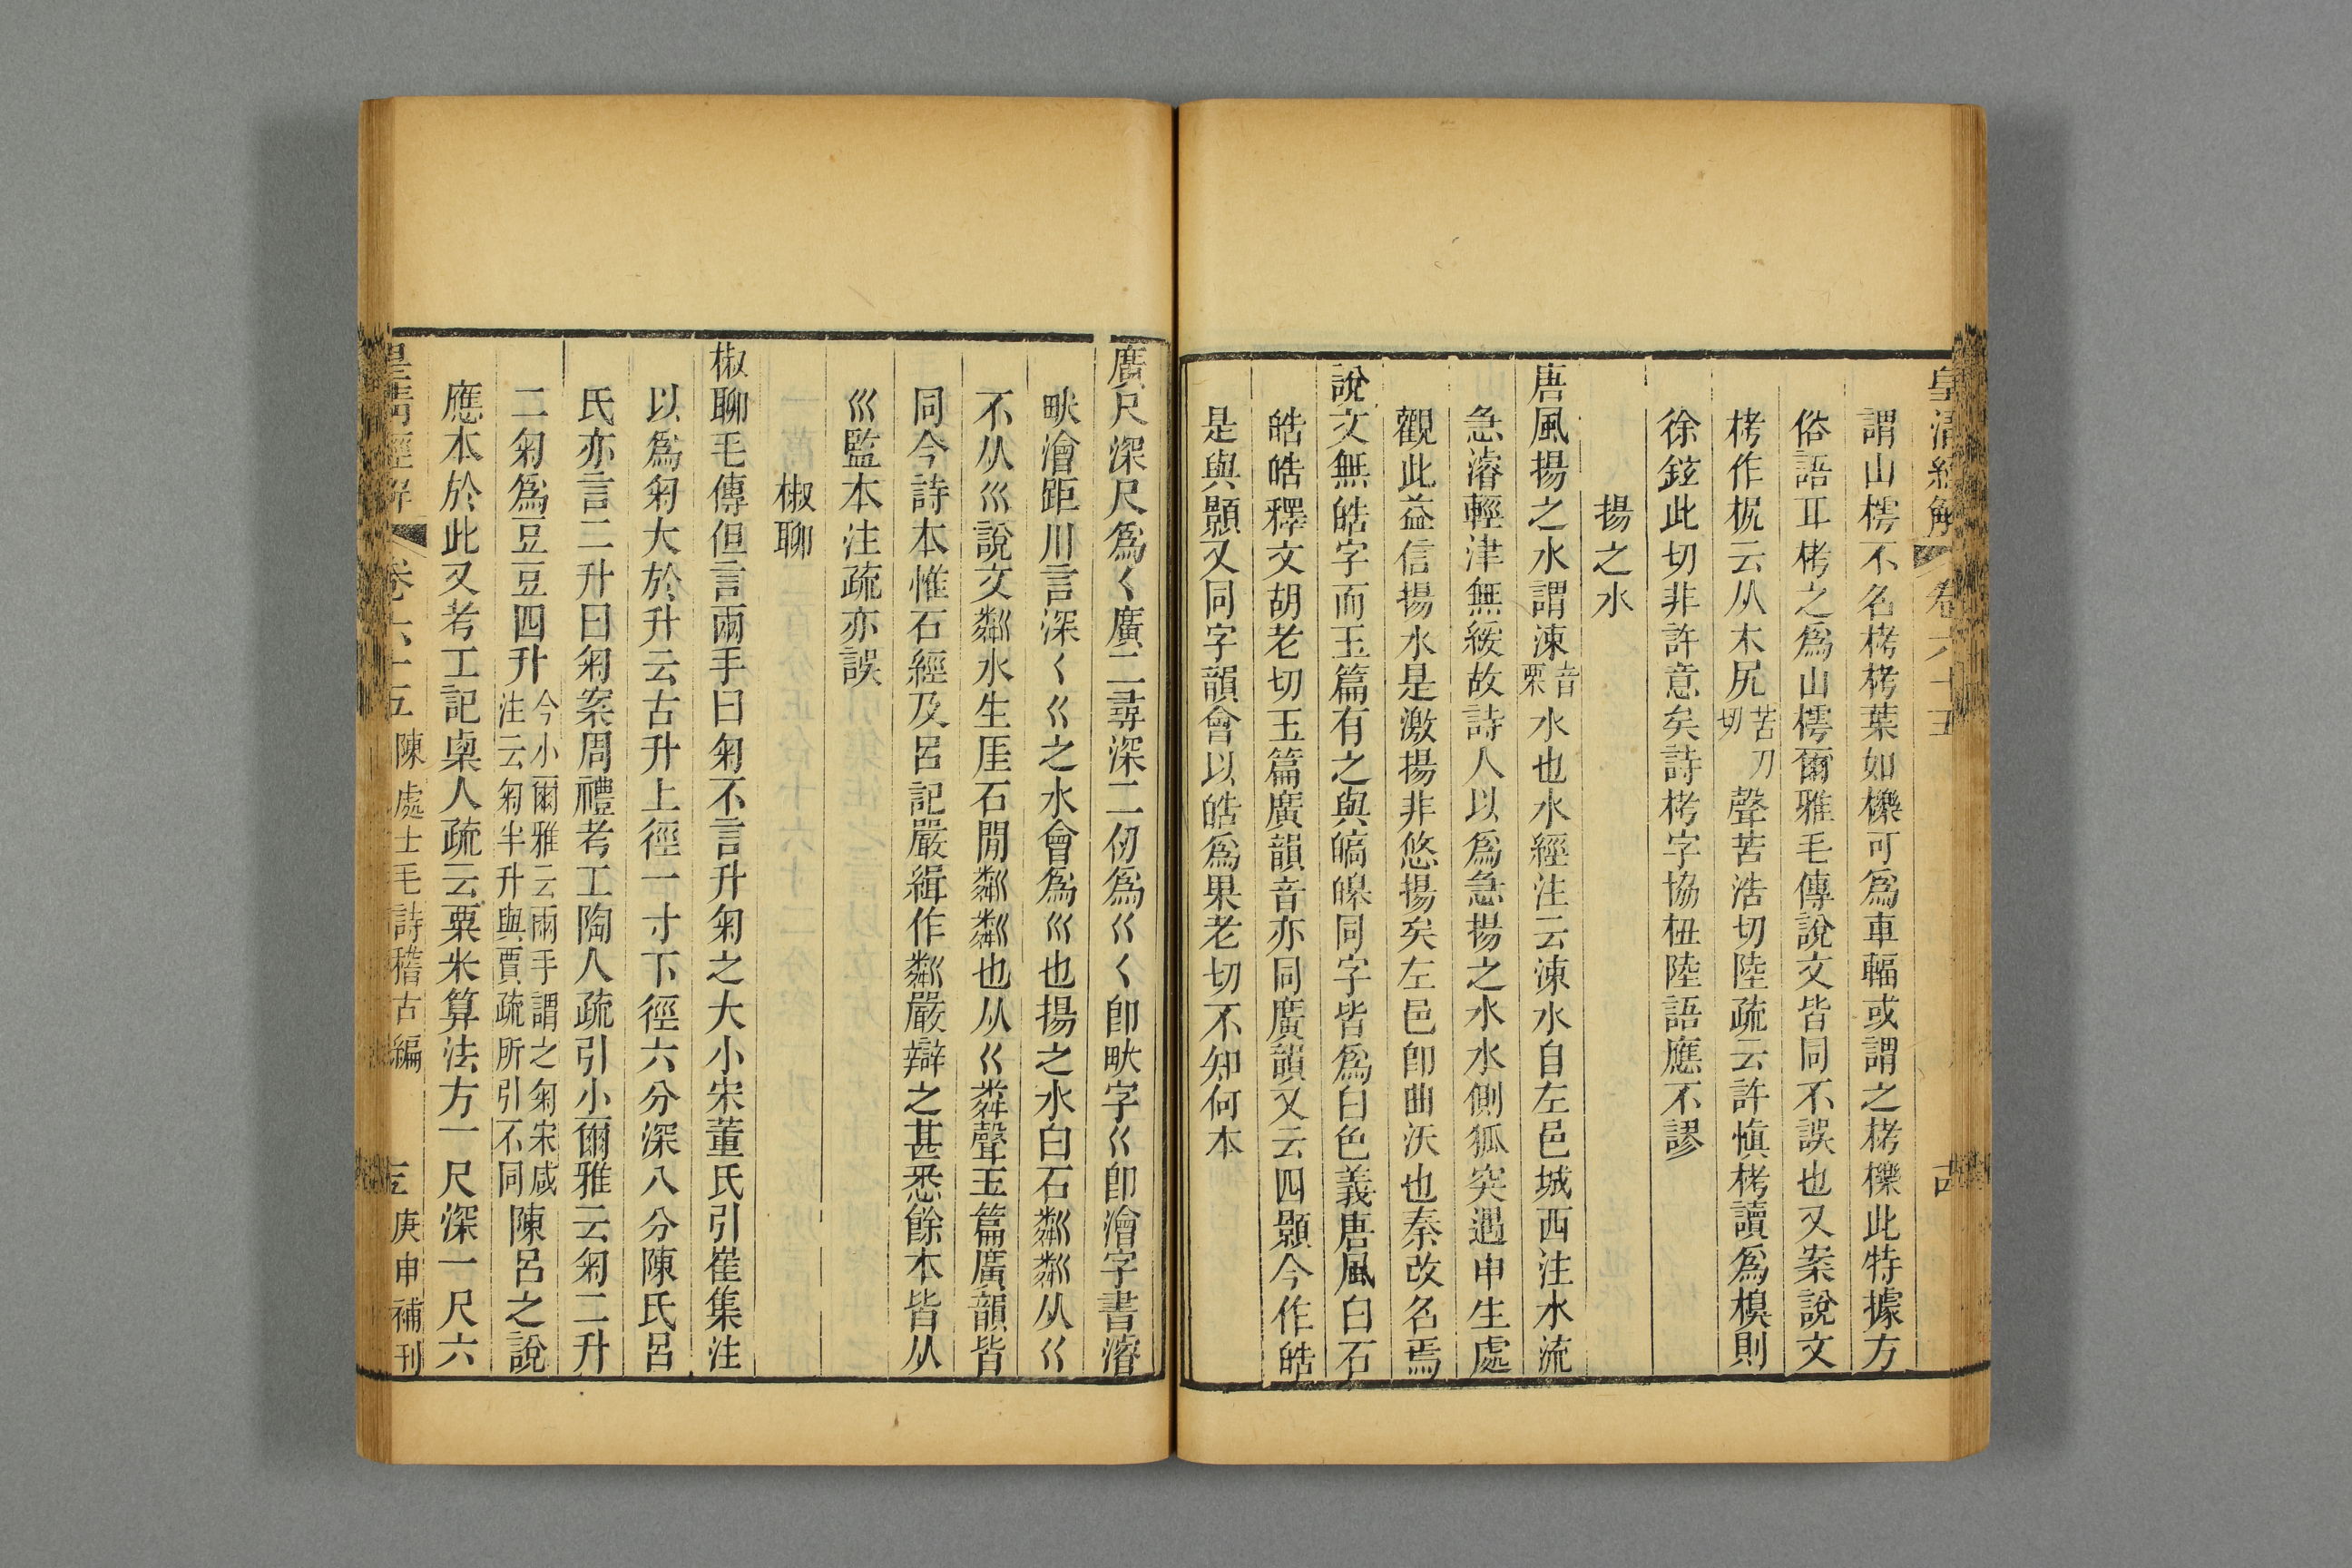 皇清經解 卷六十五
謂山樗不名栲栲葉如櫟可爲車輻或謂之栲櫟此特據方
俗語耳栲之爲山樗爾雅毛傳說文皆同不誤也又案說文
栲作㧡云从木尻苦刀切聲苦浩切陸疏云許愼栲讀爲糗則
徐鉉此切非許意矣詩栲字協杻陸語應不謬
揚之水
唐風揚之水謂涑音栗水也水經注云涑水自左邑城西注水流
急濬輕津無緩故詩人以爲急揚之水水側狐突遇申生處
觀此益信揚水是激揚非悠揚矣左邑卽曲沃也秦改名焉
說文無皓字而玉篇有之與皜皞同字皆爲白色義唐風白石
皓皓釋文胡老切玉篇廣韻音亦同廣韻又云四顥今作皓
是與顥又同字韻會以皓爲果老切不知何本
廣尺深尺爲巜廣二尋深二仞爲巜巜卽畎字巜卽澮字書濬
畎澮距川言深𡿨巜之水會爲巛也揚之水白石粼粼从巛
不从巛說文粼水生厓石閒粼粼也从巜粦聲玉篇廣韻皆
同今詩本惟石經及呂記嚴緝作粼嚴辯之甚悉餘本皆从
巛監本注疏亦誤
椒聊
椒聊毛傳但言兩手曰匊不言升匊之大小宋董氏引崔集注
以爲匊大於升云古升上徑一寸下徑六分深八分陳氏呂
氏亦言二升曰匊案周禮考工陶人疏引小爾雅云匊二升
二匊爲豆豆四升今小爾雅云兩手謂之匊宋咸注云匊半升與賈疏所引不同陳呂之說
應本於此又考工記㮚人疏云粟米算法方一尺深一尺六
皇清經解 卷六十五 陳處士毛詩稽古編 庚申補刊